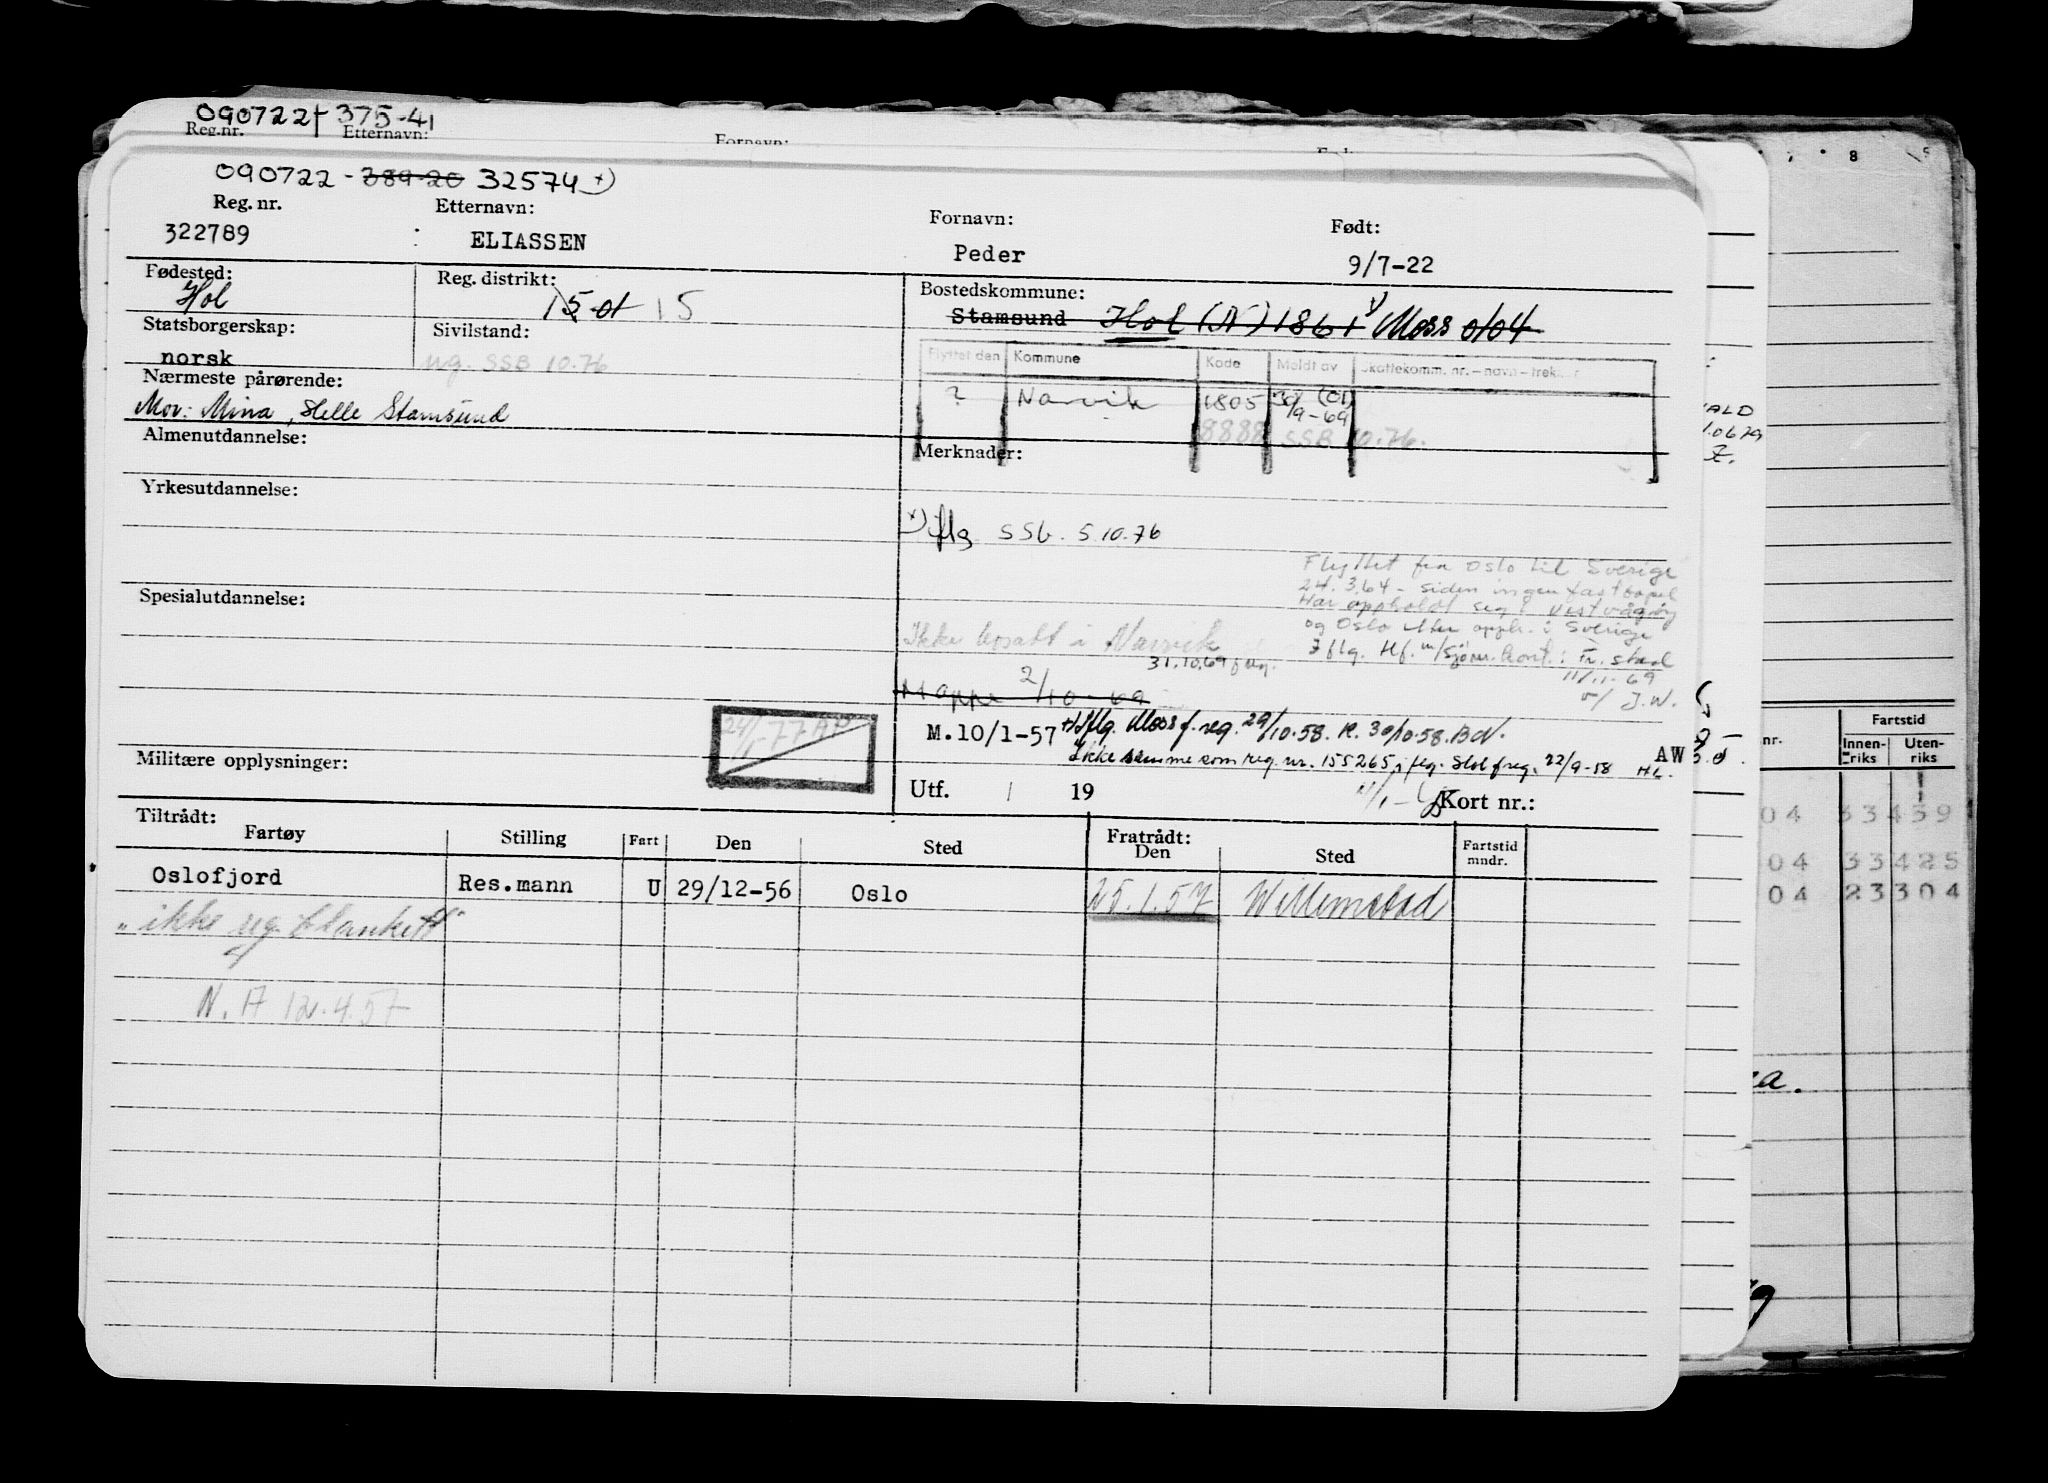 090722 375-41
Reg.nr. Etternavn: Fornavn:
090722 - 389-20 32574 x)
Reg. nr. Etternavn: Fornavn: Født:
322789 : ELIASSEN Peder 9/7-22
Fødested: Reg. distrikt: Bostedskommune:
Hol 15 ot 15 Stamsund Hol (N) 1861 Moss 0104
Statsborgerskap: Sivilstand:
norsk ug. SSB 10.76
Flyttet den Kommune Kode Meldt av Skattekomm. nr. – navn – trek
? Narvik 1805 30/9-69 (01)
8888 SSB 10.76.
Nærmeste pårørende:
Mor: Mina, Helle Stamsund
Almenutdannelse:
Merknader:
Yrkesutdannelse:
x) iflg SSb. 5.10.76
Flyttet fra Oslo til Sverige
24.3.64 - siden ingen fast bopel
Har oppholdt seg i Vestvågøy
og Oslo etter opph. i Sverige
Iflg. Hf. m/sjøm.kont. i Fr.stad
11/11-69
v/ J.W.
Spesialutdannelse:
Ikke bosatt i Narvik
31.10.69 flg.
Mappe 2/10-69
24/1-77 AP
M.10/1-57 +) Iflg. Moss f.reg. 29/10-58. R. 30/10-58. BN.
Ikke samme som reg. nr. 155265, iflg. Hol freg. 22/9-58 HL. AW
Militære opplysninger:
Utf. / 19 Kort nr.:
Tiltrådt: Fratrådt:
Fartøy Stilling Fart Den Sted Den Sted Fartstid mndr.
Oslofjord Res.mann U 29/12-56 Oslo 25.1.57 Willemstad
"ikke reg. blankett"
N.A 12.4.57
8
ALD
.0679
nr. Fartstid
Innenriks Utenriks
04 33439
04 33425
04 23304
a.